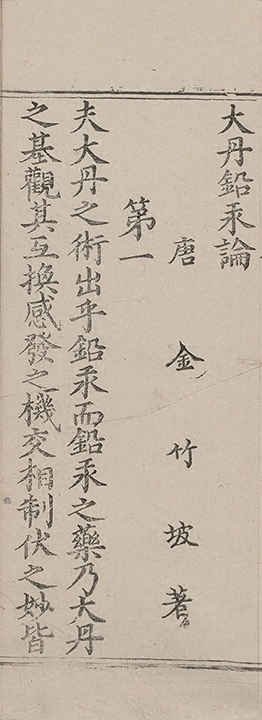 大丹鉛汞論
唐金竹坡著
第一
夫大丹之術出乎鉛汞而鉛汞之藥乃大丹
之基觀其互換感發之機交相制伏之妙皆